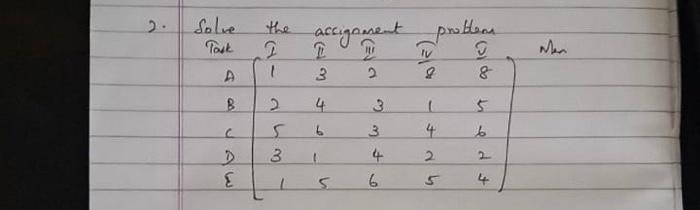 2. Solve the assignment problem
Task I II III IV V Men
A 1 3 2 8 8
B 2 4 3 1 5
C 5 6 3 4 6
D 3 1 4 2 2
E 1 5 6 5 4